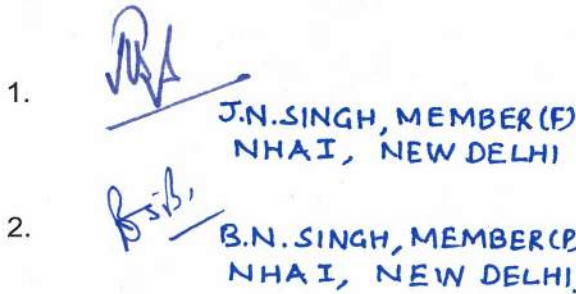 1.
J.N.SINGH, MEMBER(F)
NHAI, NEW DELHI
2.
B.N.SINGH, MEMBER(P)
NHAI, NEW DELHI.